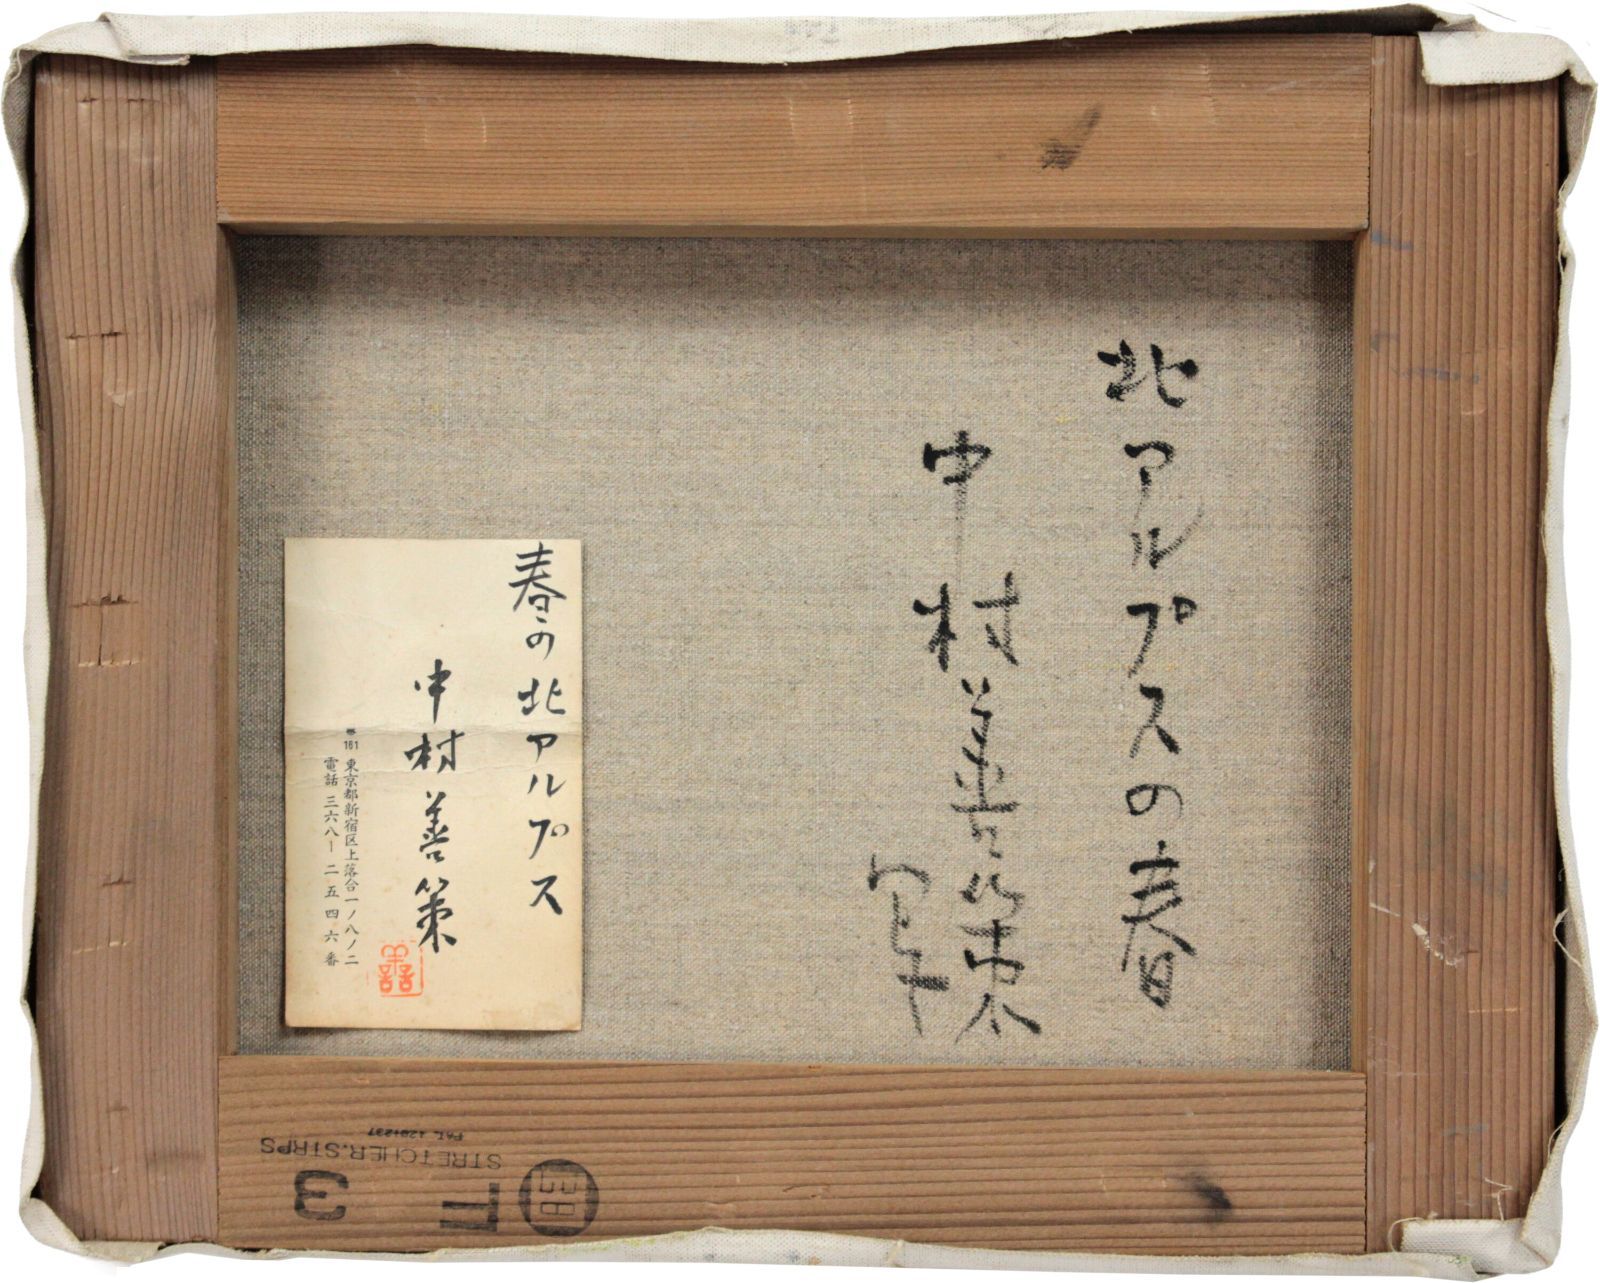 北アルプスの春
中村善策
写
春の北アルプス
中村善策
〒161 東京都新宿区上落合一ノ八ノ二
電話 三六八ー二五四六番
STRETCHER.STRPS
F 3